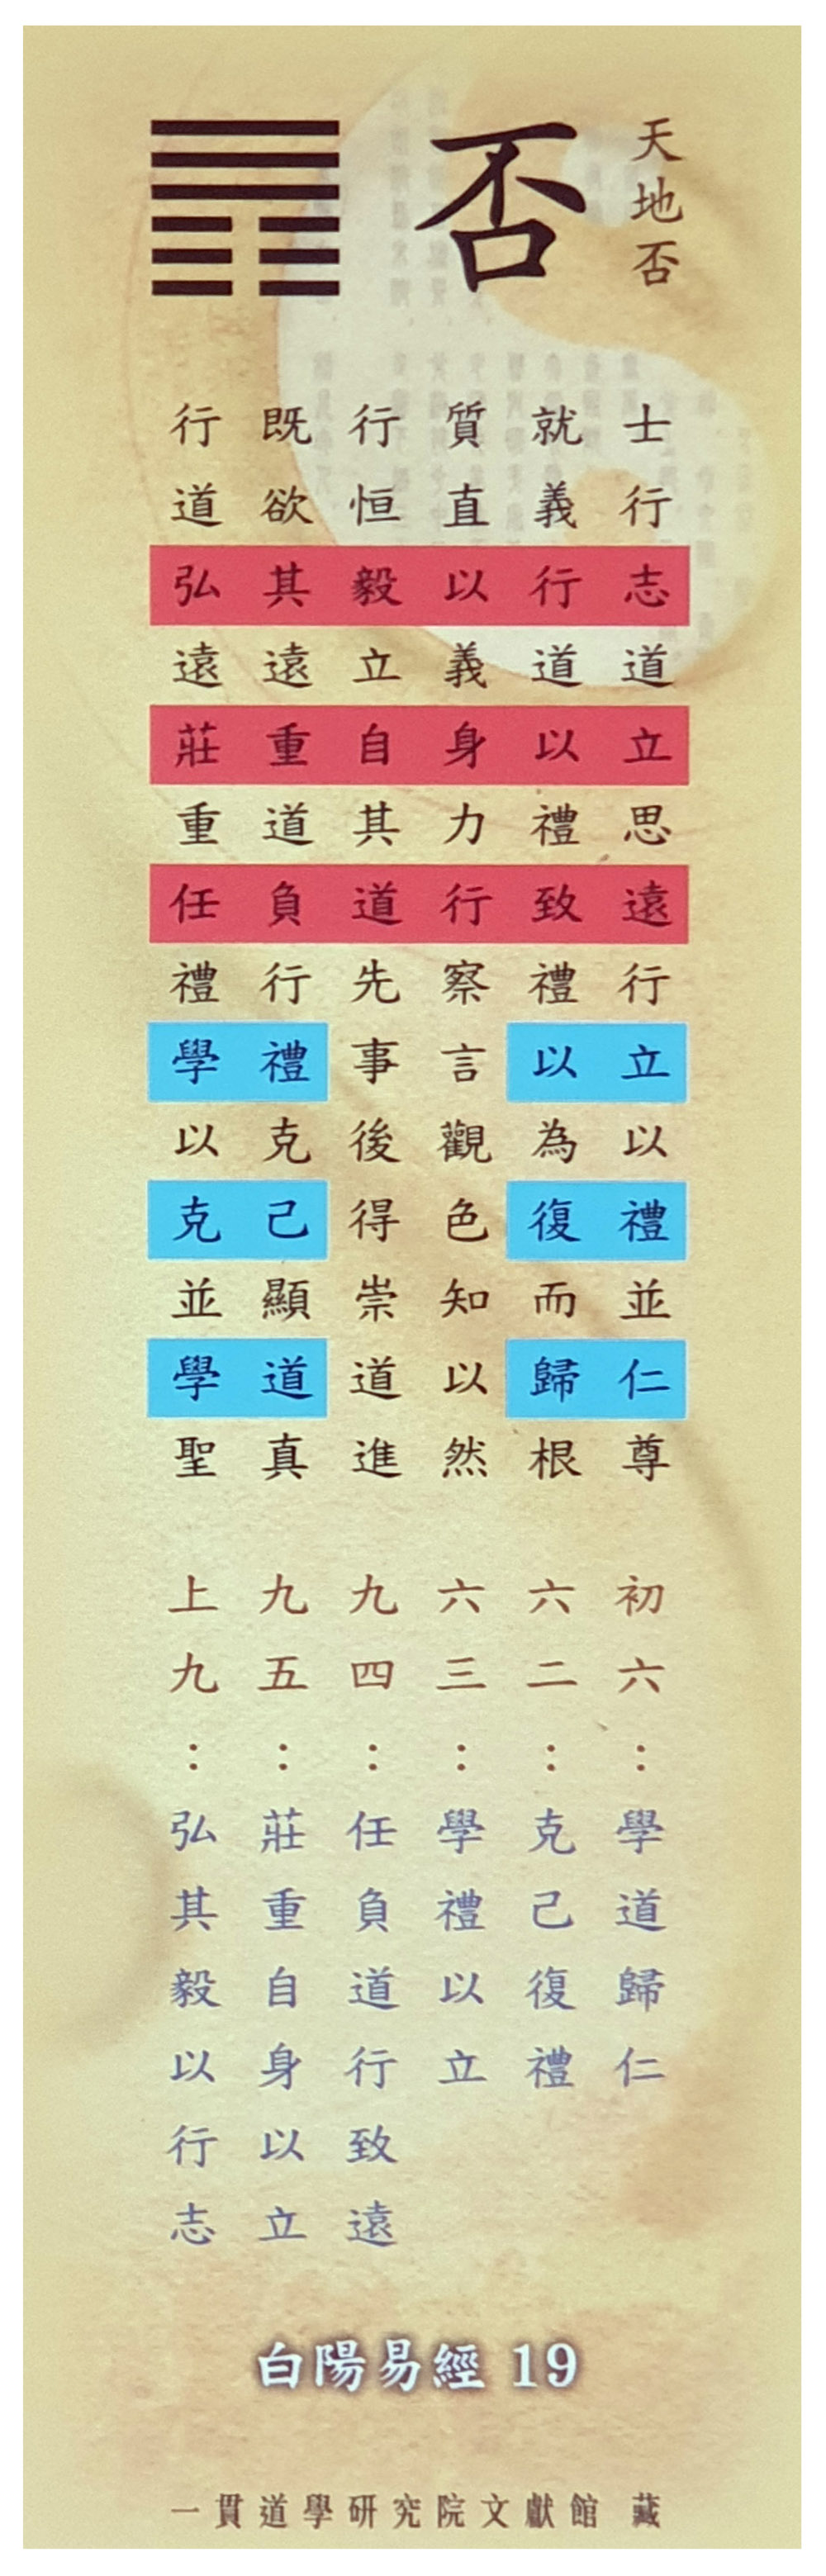 天地否
否
士行志道立思遠行立以禮並仁尊
就義行道以禮致禮以為復而歸根
質直以義身力行察言觀色知以然
行恒毅立自其道先事後得崇道進
既欲其遠重道負行禮克己顯道真
行道弘遠莊重任禮學以克並學聖
初六：學道歸仁
六二：克己復禮
六三：學禮以立
九四：任負道行致遠
九五：莊重自身以立
上九：弘其毅以行志
白陽易經 19
一貫道學研究院文獻館 藏